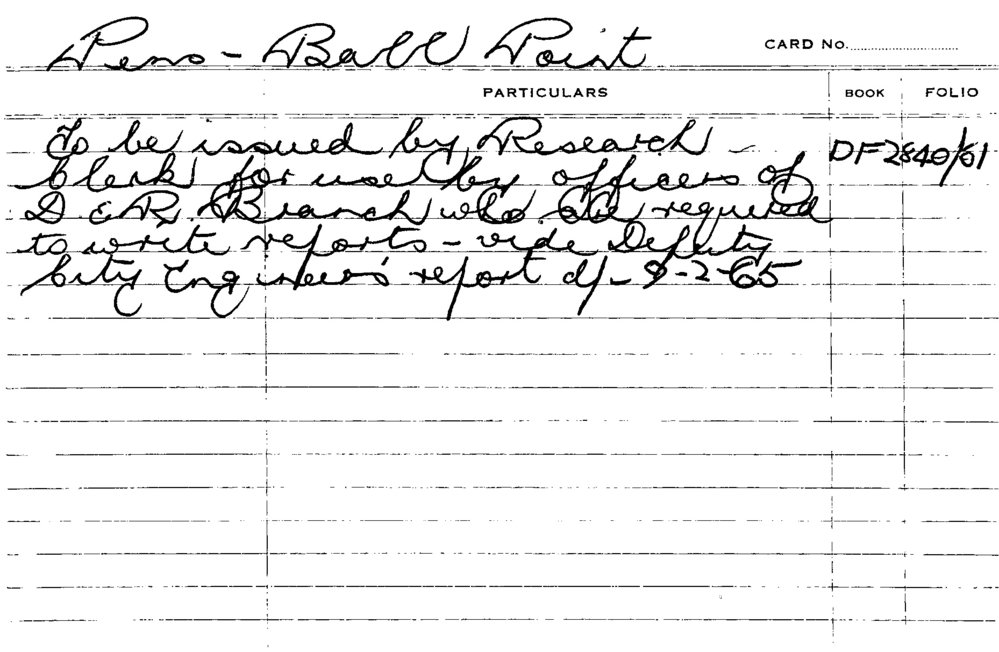 Pens - Ball Point CARD No.
PARTICULARS BOOK FOLIO
To be issued by Research - DF2840/61
Clerk for use by officers of
D & R Branch who are required
to write reports - vide Deputy
City Engineer's report d/- 9-2-65